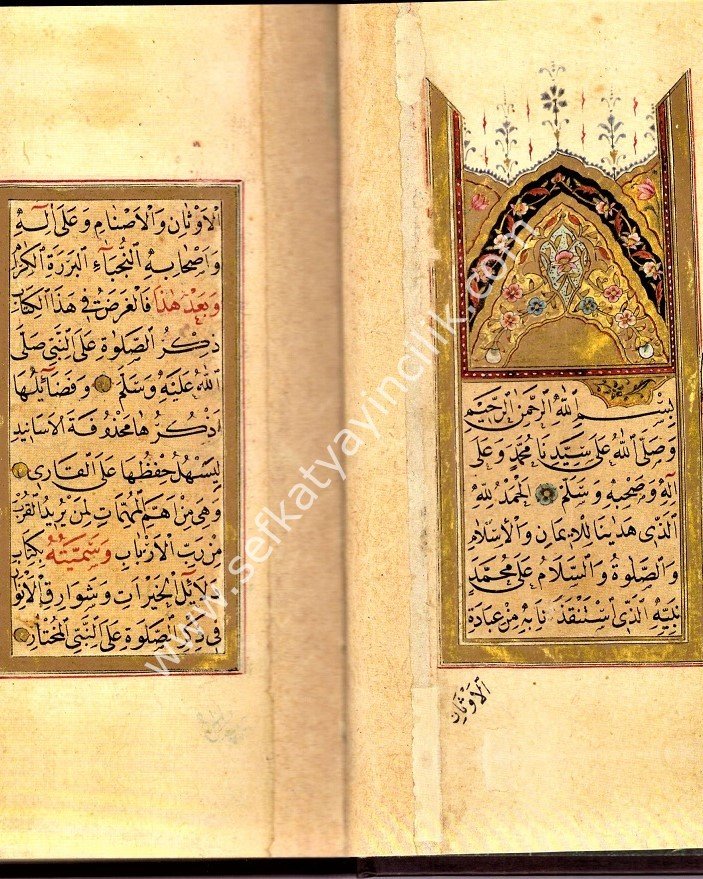 بِسْمِ اللهِ الرَّحْمٰنِ الرَّحِيْمِ
وَصَلَّى اللهُ عَلَى سَيِّدِنَا مُحَمَّدٍ وَعَلَى
اٰلِهِ وَصَحْبِهِ وَسَلَّمْ اَلْحَمْدُ لِلّٰهِ
الَّذِى هَدٰينَا لِلْاِيمَانِ وَالْاِسْلَامِ
وَالصَّلٰوةُ وَالسَّلَامُ عَلَى مُحَمَّدٍ
نَبِيِّهِ الَّذِى اسْتَنْقَذَنَا بِهِ مِنْ عِبَادَةِ
اَلْاَوْثَانِ
الْاَوْثَانِ وَالْاَصْنَامِ وَعَلَى اٰلِهِ
وَاَصْحَابِهِ النُّجَبَاءِ الْبَرَرَةِ الْكِرَامِ
وَبَعْدَ هٰذَا فَالْغَرَضُ فِى هٰذَا الْكِتَابِ
ذِكْرُ الصَّلٰوةِ عَلَى النَّبِىِّ صَلَّى
اللهُ عَلَيْهِ وَسَلَّمَ وَفَضَائِلُهَا
نَذْكُرُهَا مَحْذُوفَةَ الْاَسَانِيدِ
لِيَسْهُلَ حِفْظُهَا عَلَى الْقَارِى
وَهِىَ مِنْ اَهَمِّ الْمُهِمَّاتِ لِمَنْ يُرِيدُ الْقُرْبَ
مِنْ رَبِّ الْاَرْبَابِ وَسَمَّيْتُهُ بِكِتَابِ
دَلَائِلِ الْخَيْرَاتِ وَشَوَارِقِ الْاَنْوَارِ
فِى ذِكْرِ الصَّلٰوةِ عَلَى النَّبِىِّ الْمُخْتَارِ
www.sefkatyayincilik.com